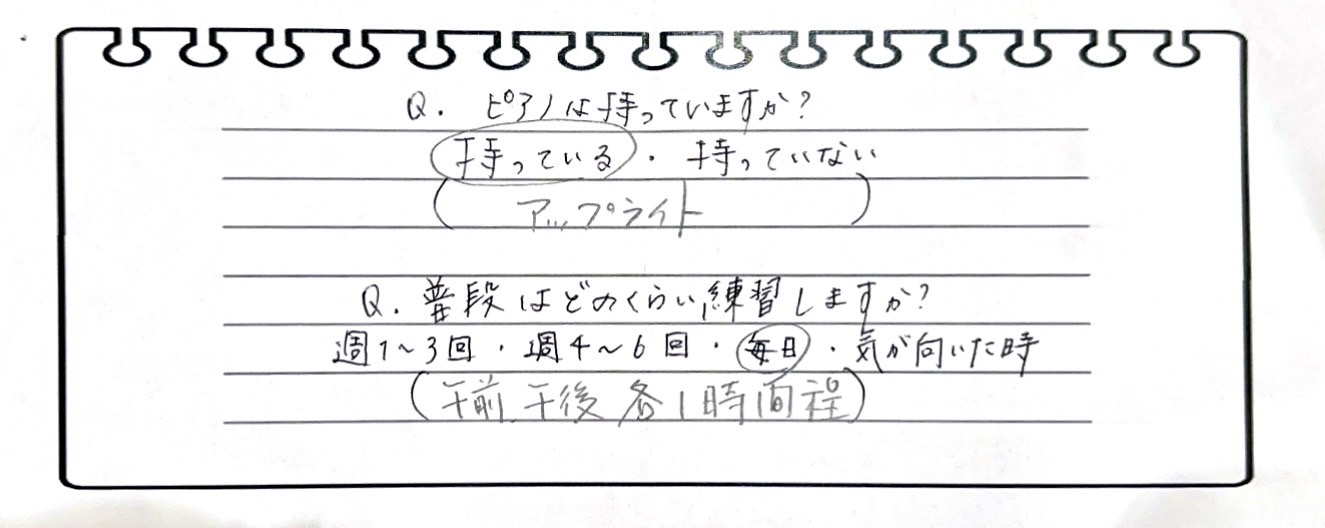 Q. ピアノは持っていますか?
持っている ・ 持っていない
(アップライト)
Q. 普段はどのくらい練習しますか?
週1~3回 ・ 週4~6回 ・ 毎日 ・ 気が向いた時
(午前、午後 各1時間程)